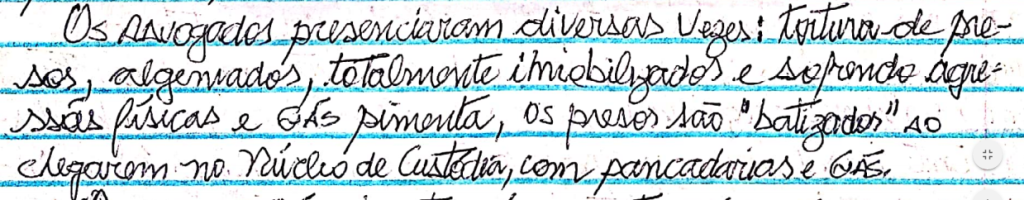 Os Advogados presenciaram diversas vezes: tortura de pre-
sos, algemados, totalmente imobilizados e sofrendo agre-
ssões físicas e GÁS pimenta, os presos são "batizados" ao
chegarem no Núcleo de Custódia, com pancadarias e GÁS.